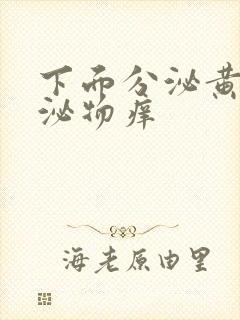 下而分泌黄
泌物痒
海老原由里